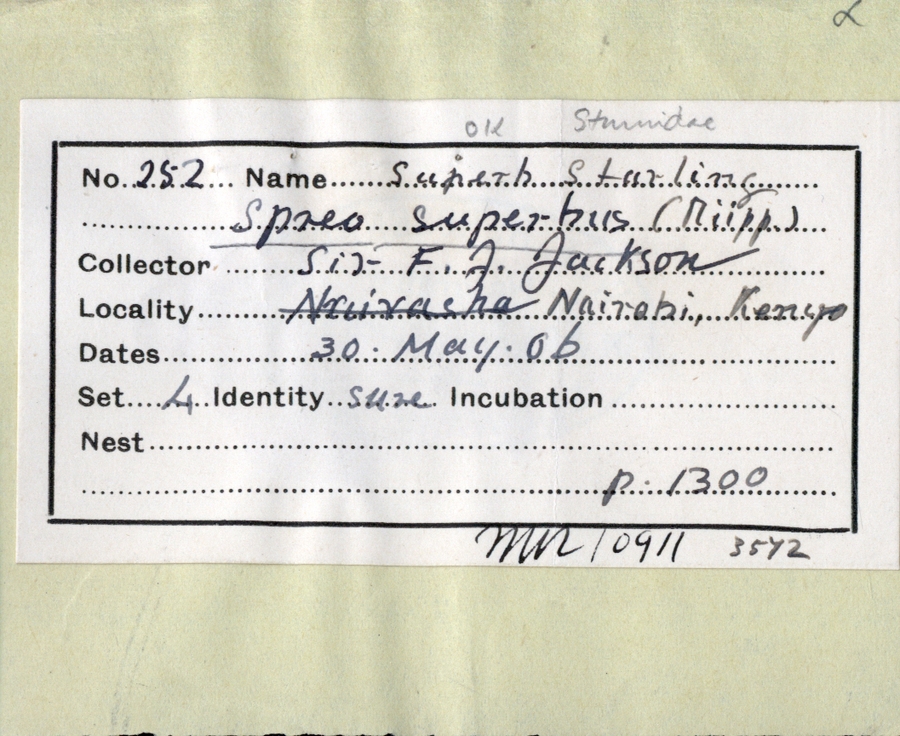 OK Sturnidae
No. 252 Name Superb Starling
Spreo superbus (Rüpp)
Collector Sir F. J. Jackson
Locality Naivasha Nairobi, Kenya
Dates 30. May. 06
Set 4 Identity sure Incubation
Nest
p. 1300
10911 3572